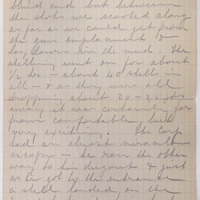 blind end but between
the shots we scooted along
as far as we could get from
the gun emplacement &
lay down in the mud. The
shelling went on for about
1/2 hr. – about 40 shells in
all – & as they were all
dropping about 20 - 25 yds
away it was certainly far
from comfortable, but
very exciting. The Corp
had an almost miraculous
escape – he ran the other
way to his dugout & just
as he got by the entrance
a shell landed on the